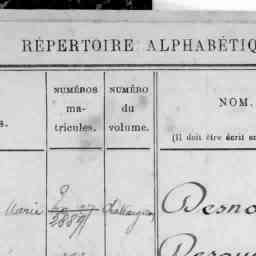 RÉPERTOIRE ALPHABÉTIQ
NUMÉROS
ma-
tricules.
NUMÉRO
du
volume.
NOM.
s.
(Il doit être écrit en
Marie
Desno